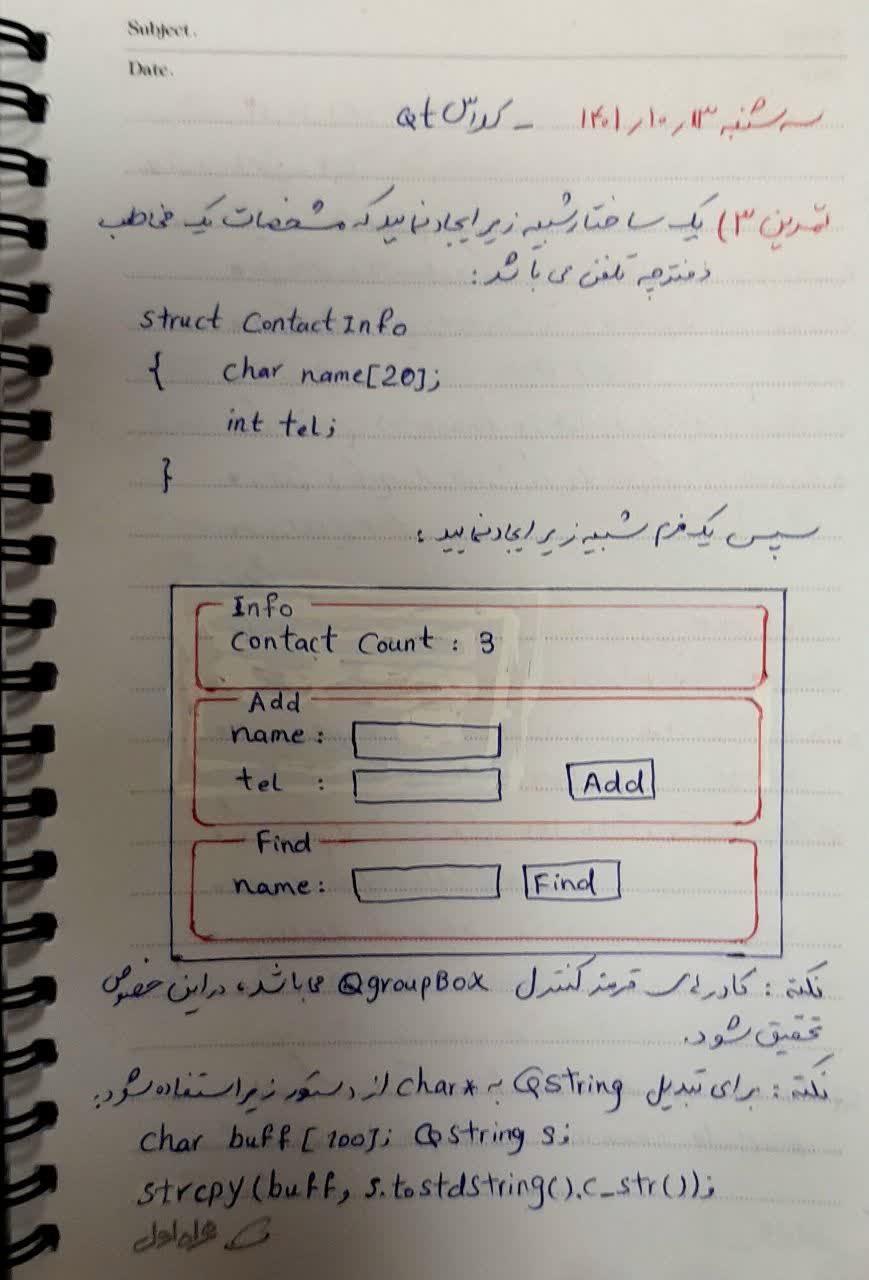 Subject.
Date.
سه شنبه ۱۳ر۱۰ر۱۴۰۱ - کلاس Qt
تمرین ۳) یک ساختار شبیه زیر ایجاد نمایید که مشخصات یک مخاطب
دفترچه تلفن می باشد:
struct ContactInfo
{ char name[20];
int tel;
}
سپس یک فرم شبیه زیر ایجاد نمایید:
Info
Contact Count : 3
Add
name:
tel : Add
Find
name: Find
نکته: کادرهای قرمز کنترل QgroupBox می باشد، در این خصوص
تحقیق شود.
نکته: برای تبدیل QString به char* از دستور زیر استفاده شود:
char buff[100]; QString s;
strcpy(buff, s.tostdString().c_str());
همراه اول